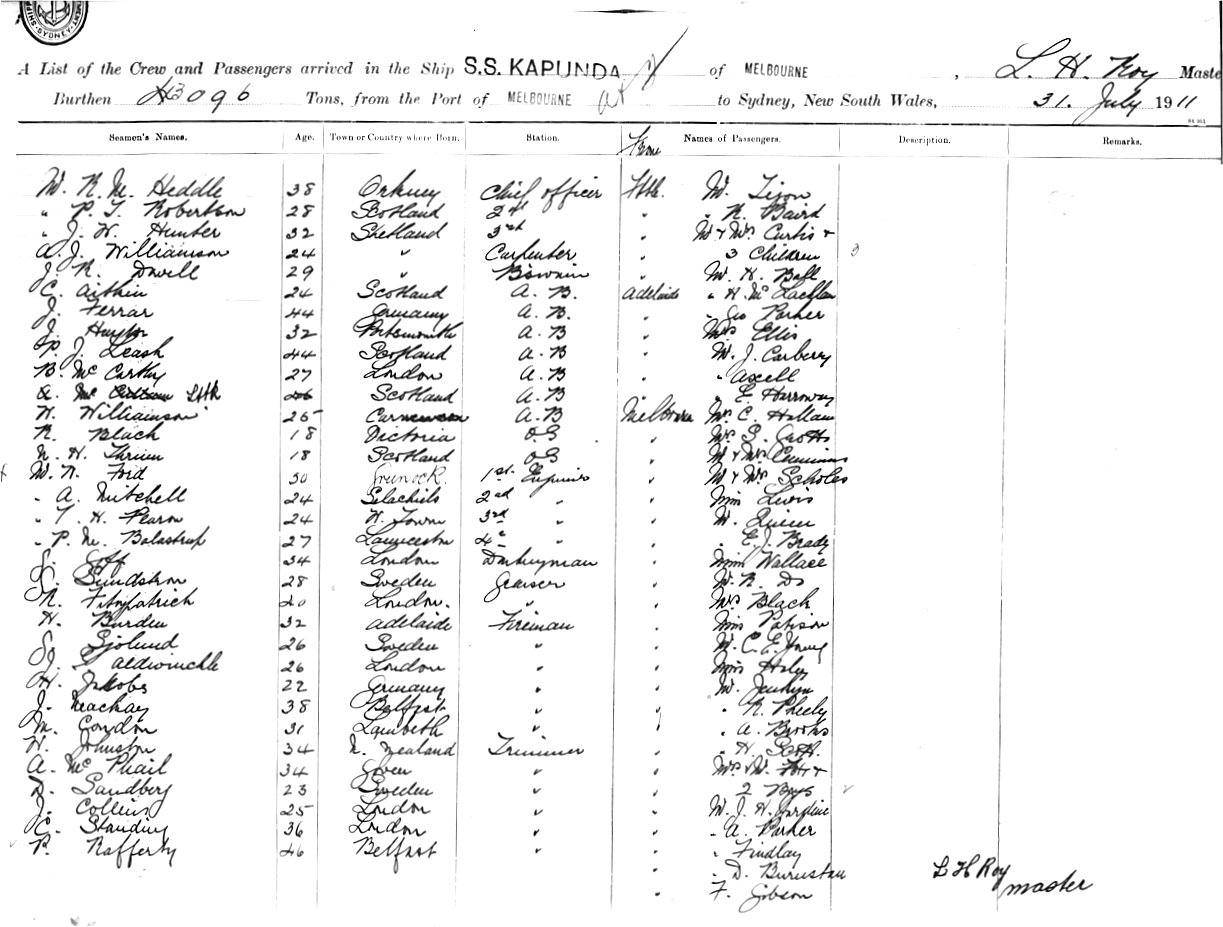 SYDNEY
A List of the Crew and Passengers arrived in the Ship S.S. KAPUNDA of MELBOURNE, L. H. Roy Maste
Burthen 3096 Tons, from the Port of MELBOURNE to Sydney, New South Wales, 31. July 1911
Seamen's Names. Age. Town or Country where Born. Station. From Names of Passengers. Description. Remarks.
W. R. M. Heddle 38 Orkney Chief officer Ftle. Mr
" P. T. Robertson 28 Scotland 2nd " " R. Baird
" J. W. Hunter 32 Shetland 3rd " Mr & Mrs Curtis &
A. J. Williamson 24 " Carpenter " 3 Children 3
J. R. 29 " Bswain " Mr H. Ball
C. Aithin 24 Scotland A. B. Adelaide " H. Mc Lachlan
J. Ferrar 44 Germany A. B. " " Geo Parker
J. 32 Portsmouth A. B " Mrs Ellis
P. J. Leash 44 Scotland A. B " Mr J. Carberry
B. Mc Carthy 27 London A. B " " Axcell
A. Mc Scotland A. B " " E. Harroway
W. Williamson 25 A. B Melbourne Mrs C. Hallam
R. Black 18 Victoria OS " Mrs S.
N. H. 18 Scotland OS " Mr & Mrs Cummins
W. N. Ford 50 Greenock. 1st. Engineer " Mr & Mrs Scholes
" A. Mitchell 24 2nd " " Miss Lewis
" T. H. Pearson 24 N. Town 3rd " " Mr Quinn
" P. M. Balastrup 27 Launceston 4th " " " E. J. Brady
S. Goff 34 London Donkeyman " Miss Wallace
S. Sundstrom 28 Sweden Greaser " Mr R. Do
R. Fitzpatrick 20 London. " " Mrs Black
H. Burden 32 Adelaide Fireman " Miss Patison
S. Sjolund 26 Sweden " " Mr C. E. Jones
J. Aldwinckle 26 London " " Miss
H. Jakobs 22 Germany " " Mr Jenkyn
J. Mackay 38 Belfast " " " R. Pheely
M. Condon 31 Lambeth " " " A. Brooks
W. Johnston 34 N. Zealand Trimmer " " H. Scott.
A. Mc Phail 34 Goven " " Mrs & Mr &
D. Sandberg 23 Sweden " " 2 Boys
J. Collins 25 London " " Mr J. H. Jardine
C. Standing 36 London " " " A. Parker
P. Rafferty 46 Belfast " " " Findlay
" " D. L H Roy
" F. Gibson master